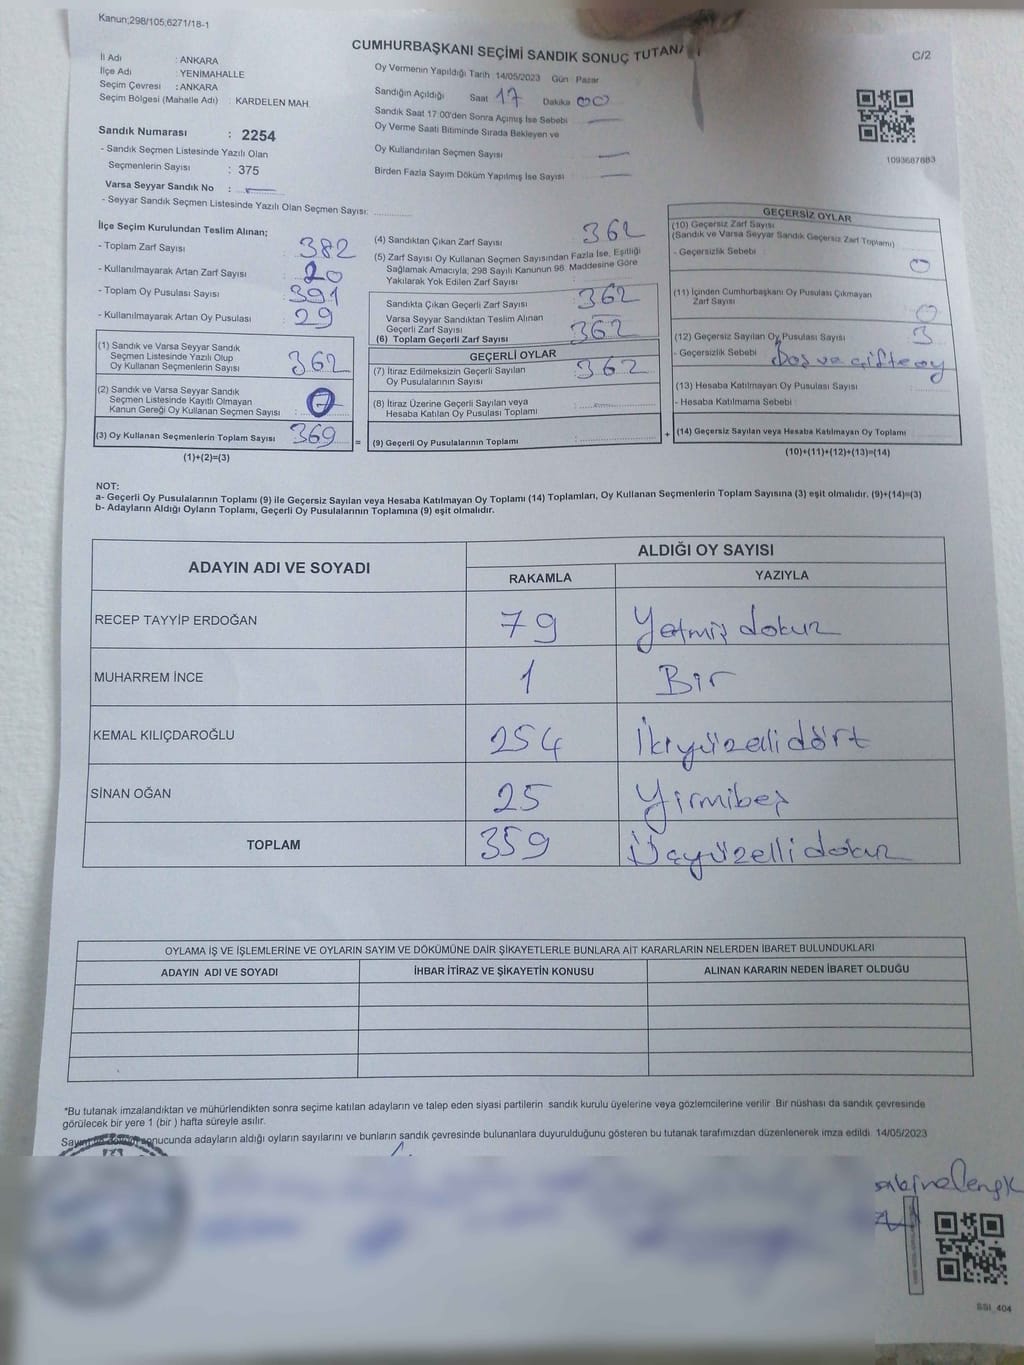 Kanun;298/105;6271/18-1
CUMHURBAŞKANI SEÇİMİ SANDIK SONUÇ TUTANA
C/2
İl Adı : ANKARA
İlçe Adı : YENİMAHALLE
Seçim Çevresi : ANKARA
Seçim Bölgesi (Mahalle Adı) : KARDELEN MAH.
Sandık Numarası : 2254
- Sandık Seçmen Listesinde Yazılı Olan
Seçmenlerin Sayısı : 375
Varsa Seyyar Sandık No :
- Seyyar Sandık Seçmen Listesinde Yazılı Olan Seçmen Sayısı:
Oy Vermenin Yapıldığı Tarih 14/05/2023 Gün Pazar
Sandığın Açıldığı Saat 17 Dakika 00
Sandık Saat 17:00'den Sonra Açımış İse Sebebi
Oy Verme Saati Bitiminde Sırada Bekleyen ve
Oy Kullandırılan Seçmen Sayısı
Birden Fazla Sayım Döküm Yapılmış İse Sayısı
1093687883
İlçe Seçim Kurulundan Teslim Alınan;
- Toplam Zarf Sayısı : 382
- Kullanılmayarak Artan Zarf Sayısı : 20
- Toplam Oy Pusulası Sayısı : 391
- Kullanılmayarak Artan Oy Pusulası : 29
(1) Sandık ve Varsa Seyyar Sandık
Seçmen Listesinde Yazılı Olup
Oy Kullanan Seçmenlerin Sayısı : 362
(2) Sandık ve Varsa Seyyar Sandık
Seçmen Listesinde Kayıtlı Olmayan
Kanun Gereği Oy Kullanan Seçmen Sayısı : 7
(3) Oy Kullanan Seçmenlerin Toplam Sayısı 369 =
(1)+(2)=(3)
(4) Sandıktan Çıkan Zarf Sayısı : 362
(5) Zarf Sayısı Oy Kullanan Seçmen Sayısından Fazla İse, Eşitliği
Sağlamak Amacıyla, 298 Sayılı Kanunun 98. Maddesine Göre
Yakılarak Yok Edilen Zarf Sayısı
Sandıkta Çıkan Geçerli Zarf Sayısı : 362
Varsa Seyyar Sandıktan Teslim Alınan
Geçerli Zarf Sayısı
(6) Toplam Geçerli Zarf Sayısı 362
GEÇERLİ OYLAR
(7) İtiraz Edilmeksizin Geçerli Sayılan
Oy Pusulalarının Sayısı : 362
(8) İtiraz Üzerine Geçerli Sayılan veya
Hesaba Katılan Oy Pusulası Toplamı
(9) Geçerli Oy Pusulalarının Toplamı : +
GEÇERSİZ OYLAR
(10) Geçersiz Zarf Sayısı
(Sandık ve Varsa Seyyar Sandık Geçersiz Zarf Toplamı)
- Geçersizlik Sebebi : 0
(11) İçinden Cumhurbaşkanı Oy Pusulası Çıkmayan
Zarf Sayısı 0
(12) Geçersiz Sayılan Oy Pusulası Sayısı 3
- Geçersizlik Sebebi : Boş ve çifte oy
(13) Hesaba Katılmayan Oy Pusulası Sayısı
- Hesaba Katılmama Sebebi :
(14) Geçersiz Sayılan veya Hesaba Katılmayan Oy Toplamı
(10)+(11)+(12)+(13)=(14)
NOT:
a- Geçerli Oy Pusulalarının Toplamı (9) ile Geçersiz Sayılan veya Hesaba Katılmayan Oy Toplamı (14) Toplamları, Oy Kullanan Seçmenlerin Toplam Sayısına (3) eşit olmalıdır. (9)+(14)=(3)
b- Adayların Aldığı Oyların Toplamı, Geçerli Oy Pusulalarının Toplamına (9) eşit olmalıdır.
ADAYIN ADI VE SOYADI
ALDIĞI OY SAYISI
RAKAMLA YAZIYLA
RECEP TAYYİP ERDOĞAN 79 Yetmiş dokuz
MUHARREM İNCE 1 Bir
KEMAL KILIÇDAROĞLU 254 İkiyüzelli dört
SİNAN OĞAN 25 Yirmibeş
TOPLAM 359 Üçyüzelli dokuz
OYLAMA İŞ VE İŞLEMLERİNE VE OYLARIN SAYIM VE DÖKÜMÜNE DAİR ŞİKAYETLERLE BUNLARA AİT KARARLARIN NELERDEN İBARET BULUNDUKLARI
ADAYIN ADI VE SOYADI İHBAR İTİRAZ VE ŞİKAYETİN KONUSU ALINAN KARARIN NEDEN İBARET OLDUĞU
*Bu tutanak imzalandıktan ve mühürlendikten sonra seçime katılan adayların ve talep eden siyasi partilerin sandık kurulu üyelerine veya gözlemcilerine verilir. Bir nüshası da sandık çevresinde
görülecek bir yere 1 (bir ) hafta süreyle asılır.
Sayım ve döküm sonucunda adayların aldığı oyların sayılarını ve bunların sandık çevresinde bulunanlara duyurulduğunu gösteren bu tutanak tarafımızdan düzenlenerek imza edildi. 14/05/2023
SSI_404